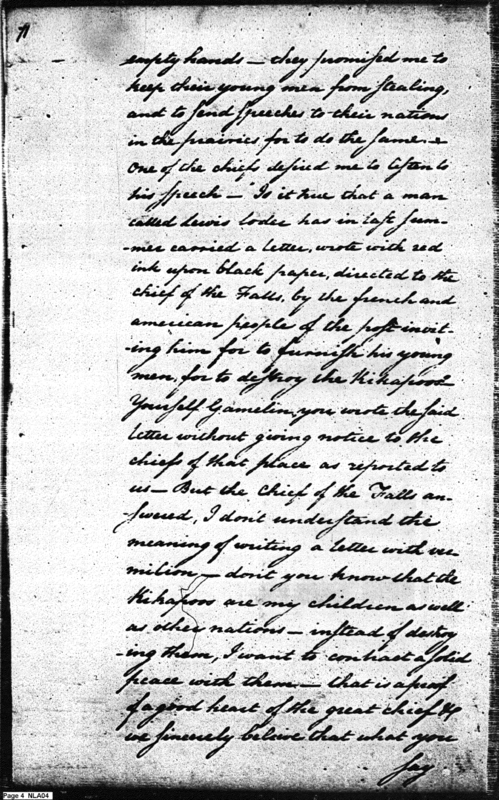 empty hands — they promised me to
keep their young men from stealing,
and to send speeches to their nations
in the prairies for to do the same —
One of the chiefs desired me to listen to
his speech — "Is it true that a man
called Lewis Loder has in last Sum-
-mer carried a letter, wrote with red
ink upon black paper, directed to the
chief of the Falls, by the french and
american people of the post invit-
-ing him for to furnish his young
men, for to destroy the Kikapoos
Yourself Gamelin, you wrote the said
letter without giving notice to the
chiefs of that place as reported to
us — But the Chief of the Falls an-
swered, I don't understand the
meaning of writing a letter with ver
milion — don't you know that the
Kikapoos are my children as well
as other nations — instead of destroy
-ing them, I want to contract a solid
peace with them — that is a proof
of a good heart of the great chief &
we sincerely believe that what you
say
Page 4 NLA04